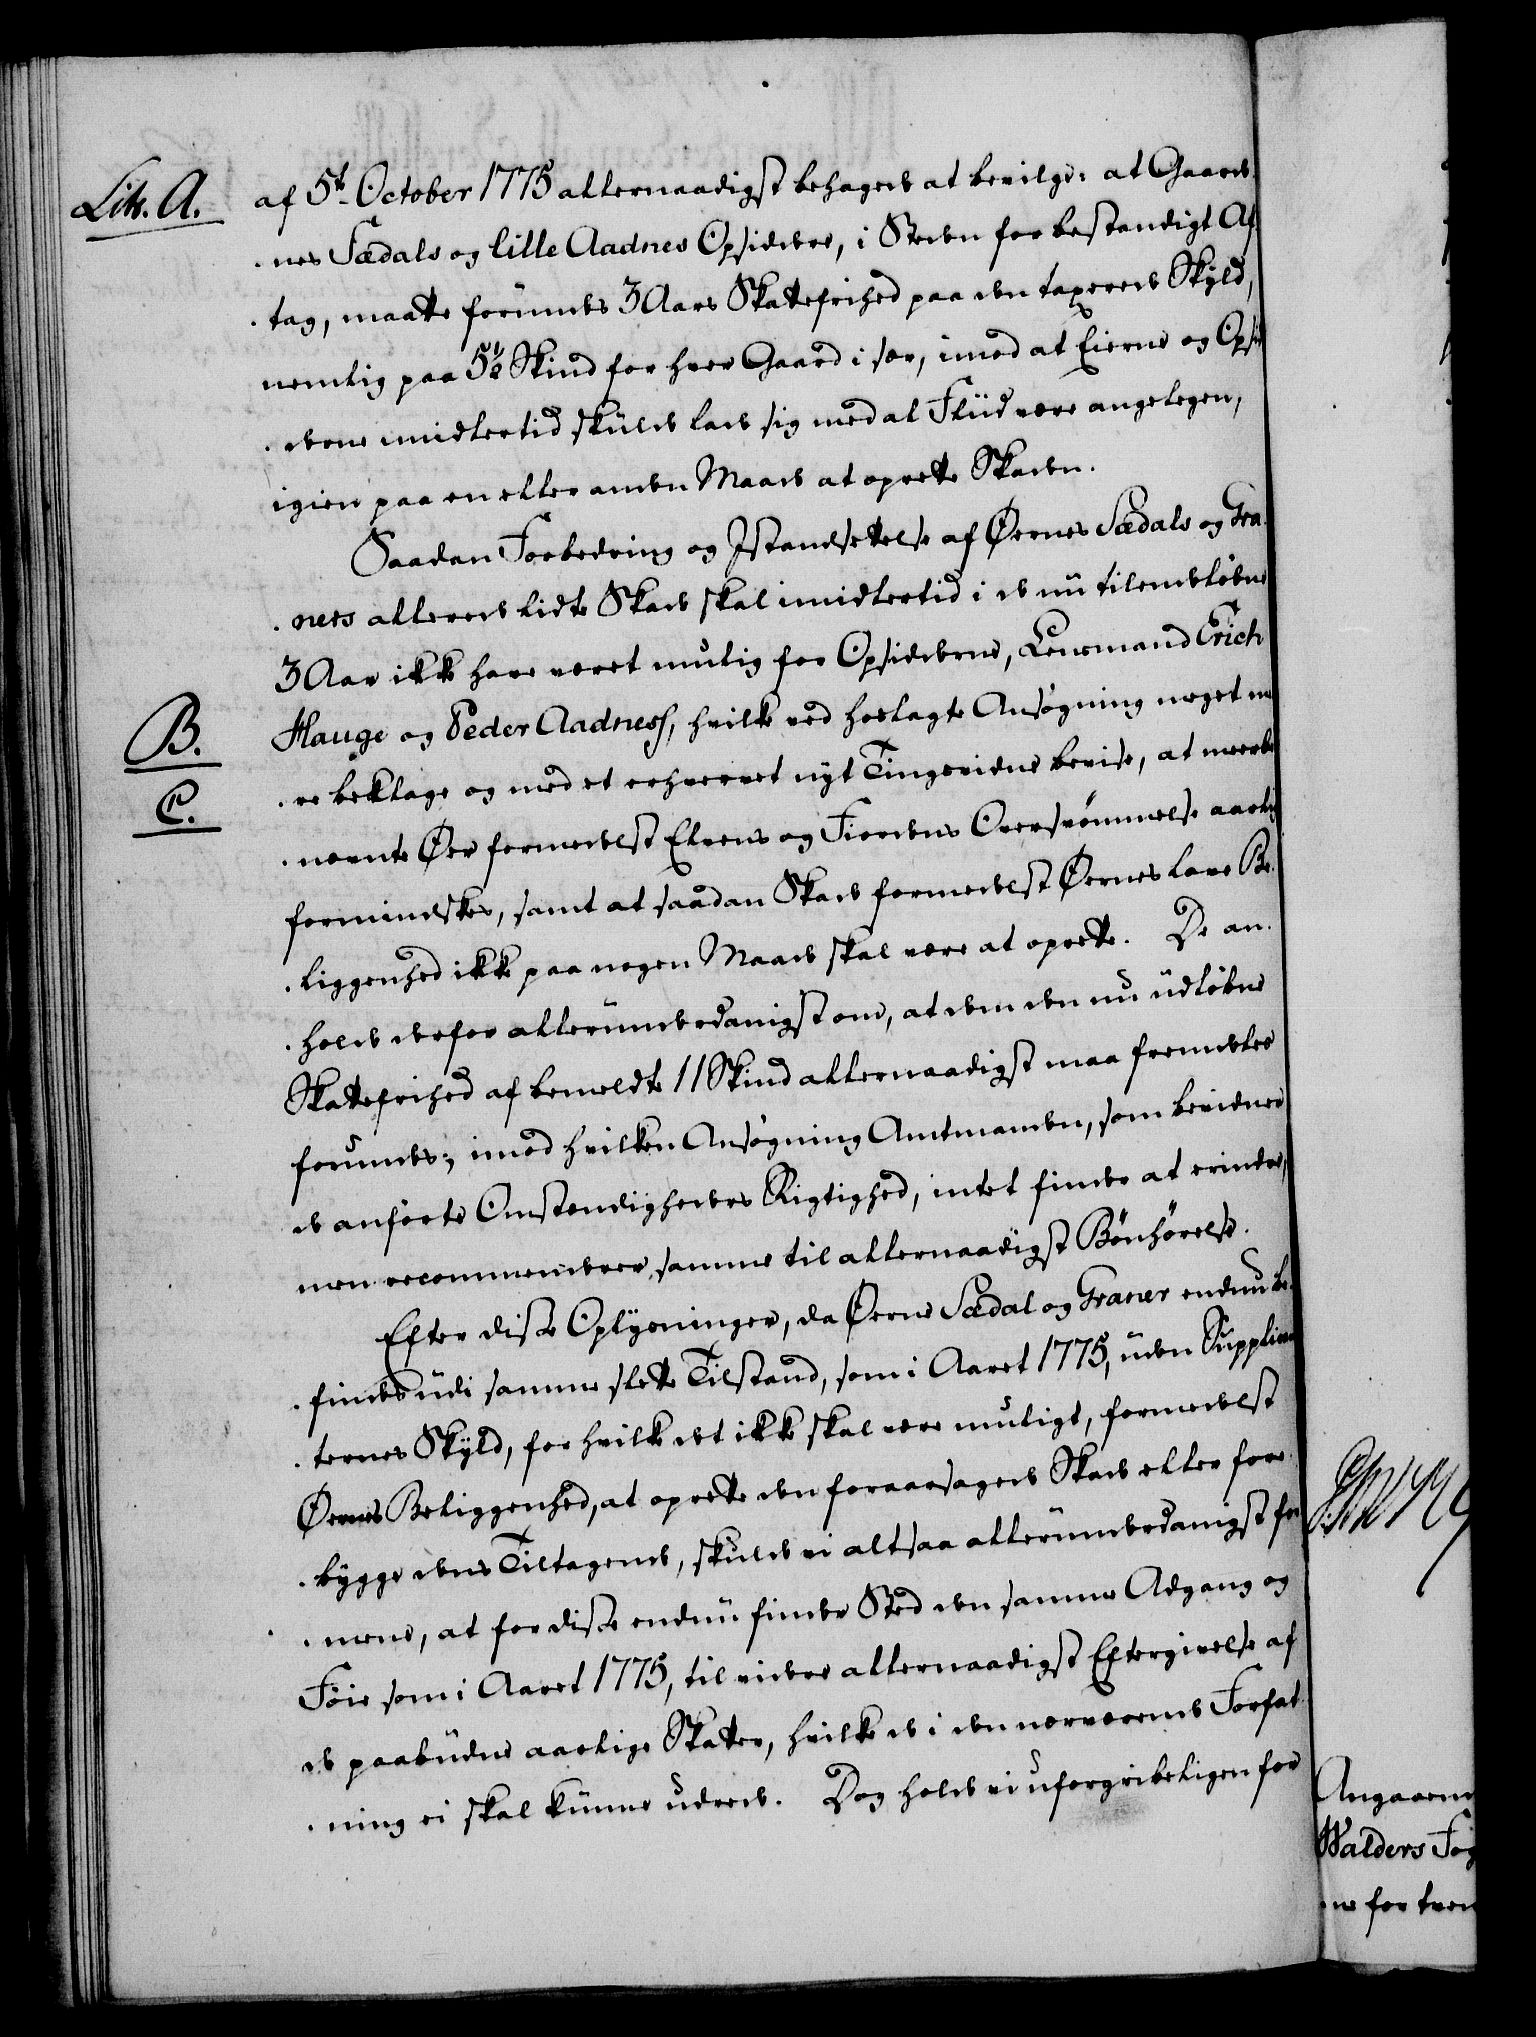 Litr. A.
af 5t October 1775 allernaadigst behagede at bevilge: at Gaarde-
nes Sædals og lille Aadnes Opsiddere, i Steden for bestandigt Af-
tag, maatte forundes 3 Aars Skattefrihed paa den taxerede Skyld,
nemlig paa 5½ Skind for hver Gaard i sær, imod at Eierne og Opsid-
derne imidlertid skulde lade sig med al Fliid være angelegen,
igien paa en eller anden Maade at oprette Skaden.
Saadan Forbedring og Istandsettelse af Øernes Sædals og Gra-
ners allerede lidte Skade skal imidlertid i de nu tilendeløbne
3 Aar ikke have været mulig for Opsidderne, Lensmand Erich
B.
Hauge og Peder Aadness, hvilke ved hoslagte Ansøgning noget me-
C.
re beklage og med et erhvervet nyt Tingsvidne bevise, at meerbe-
nevnte Øer formedelst Elvens og Fiordens Oversvømmelse aarlig
formindskes, samt at saadan Skade formedelst Øernes lave Be-
liggenhed ikke paa nogen Maade skal være at oprette. De an-
holde derfor allerunderdanigst om, at dem den nu udløbne
Skattefrihed af bemeldte 11 Skind allernaadigst maa fremdeles
forundes; imod hvilken Ansøgning Amtmanden, som bevidner
de anførte Omstendigheders Rigtighed, intet finder at erindre,
men recommenderer samme til allernaadigst Bønhørelse.
Efter disse Oplysninger, da Øerne Sædal og Graner endnu be-
findes udi samme slette Tilstand, som i Aaret 1775, uden Supplican-
ternes Skyld, for hvilke det ikke skal være muligt, formedelst
Øernes Beliggenhed, at oprette den foraarsagede Skade eller fore-
bygge dens Tiltagende, skulde vi altsaa allerunderdanigst for-
mene, at for disse endnu finder Sted den samme Adgang og
Føie som i Aaret 1775, til videre allernaadigst Eftergivelse af
de paabudne aarlige Skatter, hvilke de i den nærværende Forfat-
ning ei skal kunne udrede. Dog holde vi uforgribeligen for
Angaaende
Walders Fog
ne for tven